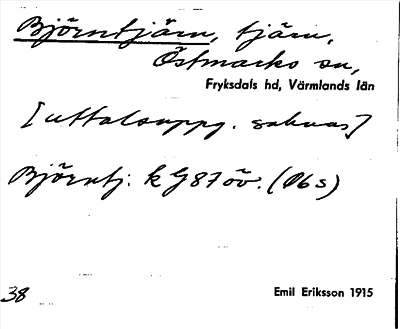 Björntjärn, tjärn,
Östmarks sn,
Fryksdals hd, Värmlands län
[uttalsuppg. saknas]
Björntj. k G87 öv. (Ö6s)
38
Emil Eriksson 1915